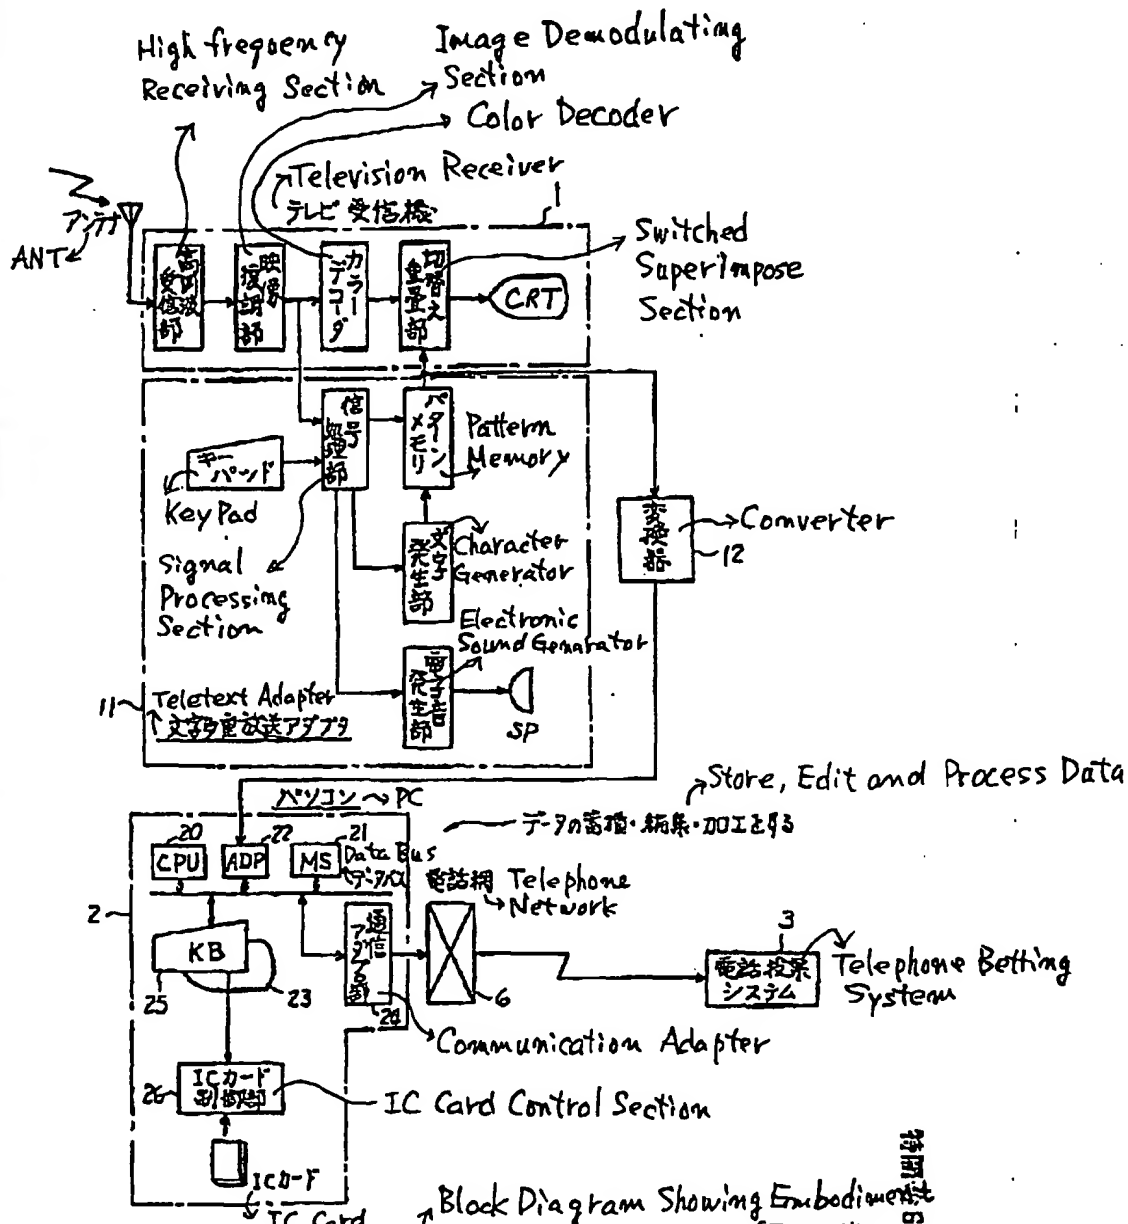 High frequency
Receiving Section
Image Demodulating
Section
Color Decoder
Television Receiver
テレビ受信機
1
アンテナ
ANT
高周波
受信部
映像
復調部
カラー
デコーダ
切替え
重畳部
CRT
Switched
Superimpose
Section
信号
処理部
パターン
メモリ
Pattern
Memory
キー
パッド
Key Pad
Signal
Processing
Section
文字
発生部
Character
Generator
変換器
Converter
12
Electronic
Sound Genarator
電子音
発生部
SP
11
Teletext Adapter
文字多重放送アダプタ
パソコン
PC
Store, Edit and Process Data
データの蓄積・編集・加工をする
20
22
21
CPU
ADP
MS
Data Bus
データバス
電話網
Telephone
Network
2
KB
25
23
通信
アダプタ部
24
6
3
電話投票
システム
Telephone Betting
System
Communication Adapter
26
ICカード
制御部
IC Card Control Section
ICカード
IC Card
Block Diagram Showing Embodiment